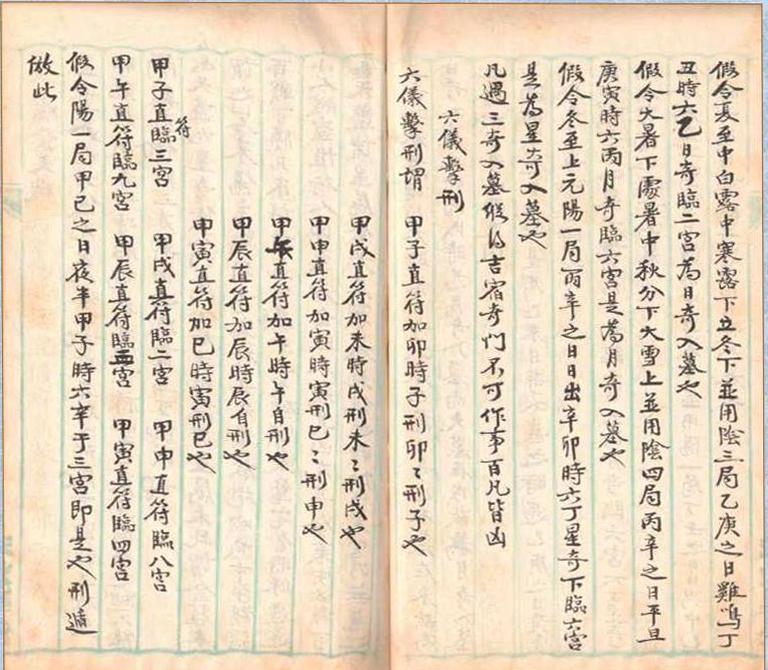 假令夏至中白露中寒露下立冬下並用陰三局乙庚之日雞鳴丁
丑時六乙日奇臨二宮為日奇入墓也
假令大暑下處暑中秋分下大雪上並用陰四局丙辛之日平旦
庚寅時六丙月奇臨六宮是為月奇入墓也
假令冬至上元陽一局丙辛之日日出辛卯時六丁星奇下臨六宮
是為星奇入墓也
凡遇三奇入墓縱得吉宿奇门不可作事百凡皆凶
六儀擊刑
六儀擊刑謂 甲子直符加卯時子刑卯〻刑子也
甲戌直符加未時戌刑未〻刑戌也
甲申直符加寅時寅刑巳〻刑申也
甲午直符加午時午自刑也
甲辰直符加辰時辰自刑也
甲寅直符加巳時寅刑巳也
甲子直符臨三宮 甲戌直符臨二宮 甲申直符臨八宮
甲午直符臨九宮 甲辰直符臨四宮 甲寅直符臨四宮
假令陽一局甲己之日夜半甲子時六辛于三宮即是也 刑遁
倣此